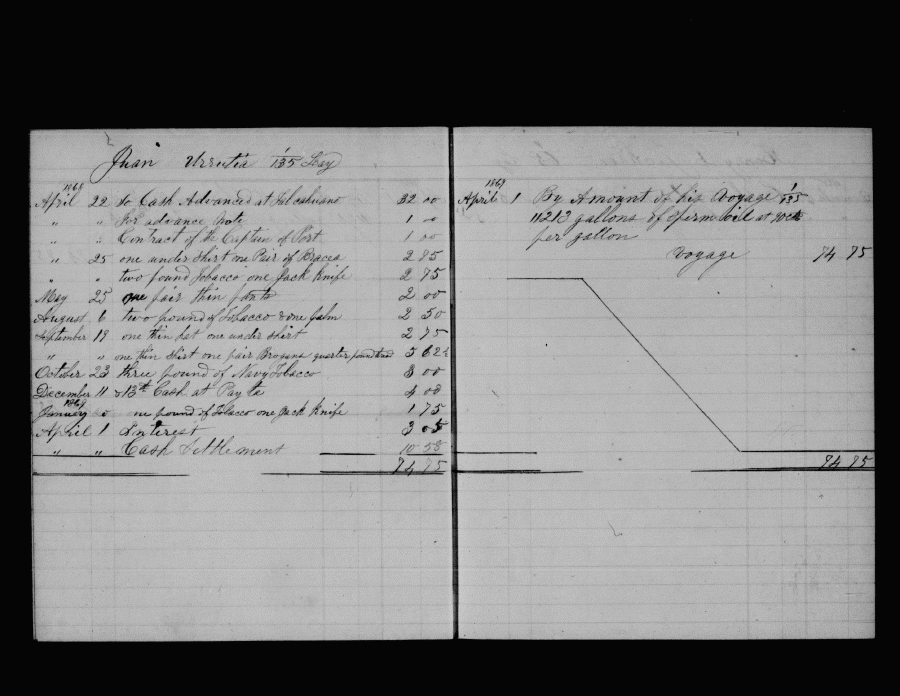 Juan Urrutia 1/135 Lay
1868
April 22 To Cash Advanced at Talcahuano 32 00
" " For advance Note 1 00
" " Contract of the Captain of Port 1 00
" 25 one under shirt one Pair of Braces 2 25
" " two pound Tobacco one Jack Knife 2 75
May 25 one pair thin pants 2 00
August 6 two pound of Tobacco & one palm 2 50
September 19 one thin hat one under shirt 2 75
" " one thin shirt one pair Brogans quarter pound 5 62½
October 23 three pound of Navy Tobacco 3 00
December 11 & 13th Cash at Payta 4 00
1869
January one pound of Tobacco one Jack Knife 1 75
April 1 Interest 3 05
" " Cash Settlement 10 58
74 75
1869
April 1 By Amount of his Voyage 1/135
11213 gallons of Sperm Oil at 90 cts
per gallon
Voyage 74 75
74 75